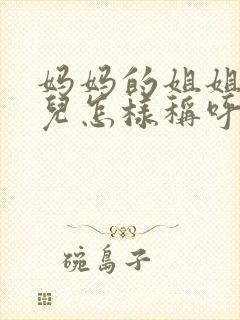 妈妈的姐姐
兒怎樣稱呼
碗島子